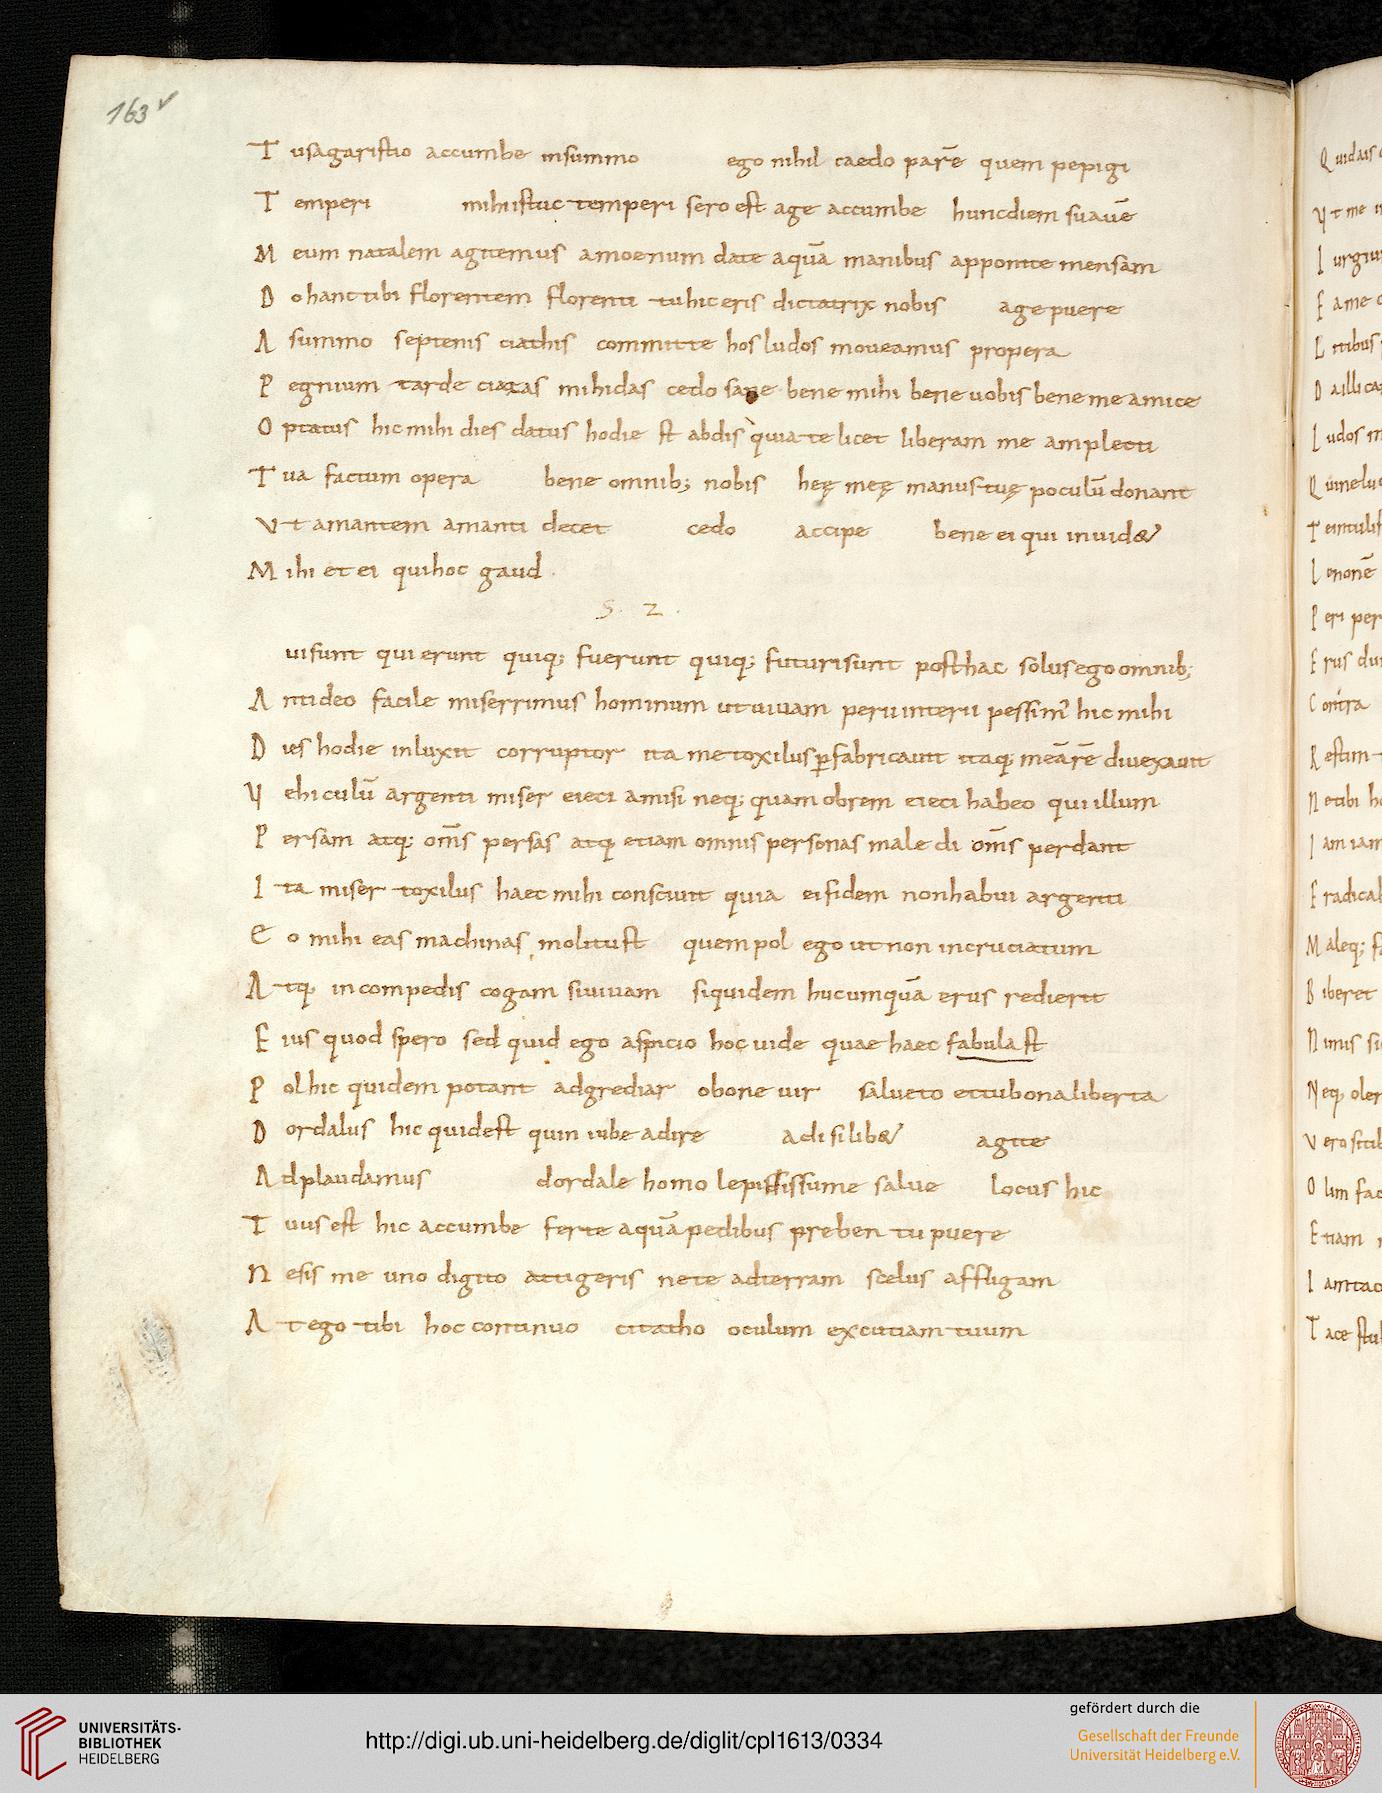 163v
T usagaristio accumbe insummo ego nihil caedo parē quem pepigi
T emperi mihiistuc temperi sero est age accumbe huncdiem suauē
M eum natalem agitemus amoenum date aquā manibus apponite mensam
D o hanc tibi florentem florenti tu hic eris dictatrix nobis age puere
A summo septenis ciathis committe hos ludos moueamus propera
P egnium tarde ciatas mihi das cedo sane bene mihi bene uobis bene me amice
O ptatus hic mihi dies datus hodie st abdis quia te licet liberam me amplecti
T ua factum opera bene omnib; nobis heę meę manus tuę poculū donant
V t amantem amanti decet cedo accipe bene ei qui inuid&
M ihi et ei qui hoc gaud
S. Z.
ui sunt qui erunt quiq; fuerunt quiq; futuri sunt posthac solus ego omnib;
A ntideo facile miserrimus hominum ut uiuam perii interii pessim' hic mihi
D ies hodie inluxit corruptor ita me toxilus p̄fabricauit itaq; meā rē diuexauit
V ehiculū argenti miser eieci amisi neq; quamobrem eieci habeo qui illum
P ersam atq; om̄s persas atq; etiam omnis personas male di om̄s perdant
I ta miser toxilus haec mihi consciuit quia ei fidem non habui argenti
E o mihi eas machinas molitust quem pol ego ut non incruciatum
A tq; incompedis cogam si uiuam siquidem huc umquā erus redierit
E ius quod spero sed quid ego aspicio hoc uide quae haec fabulast
P ol hic quidem potant adgrediar o bone uir salueto et tu bona liberta
D ordalus hic quidest quin iube adire adi si lib& agite
A dplaudamus dordale homo lepidissume salue locus hic
T uus est hic accumbe ferte aquā pedibus preben tu puere
N e sis me uno digito attigeris ne te ad terram scelus affligam
A t ego tibi hoc continuo citatho oculum excutiam tuum
Q uid ais
V t me
I urgiu
F ame
L itibus
D a illi
L udos
Q ui me lu
T e intulis
L enonē
P eri per
E rus du
C ontra
R estim
N e tibi h
I am iam
E radica
M aleq; f
B iberet
N imis si
Neq; oler
V ero scitil
O lim fac
E tiam
I am tac
T ace stul
UNIVERSITÄTS-
BIBLIOTHEK
HEIDELBERG
http://digi.ub.uni-heidelberg.de/diglit/cpl1613/0334
gefördert durch die
Gesellschaft der Freunde
Universität Heidelberg e.V.